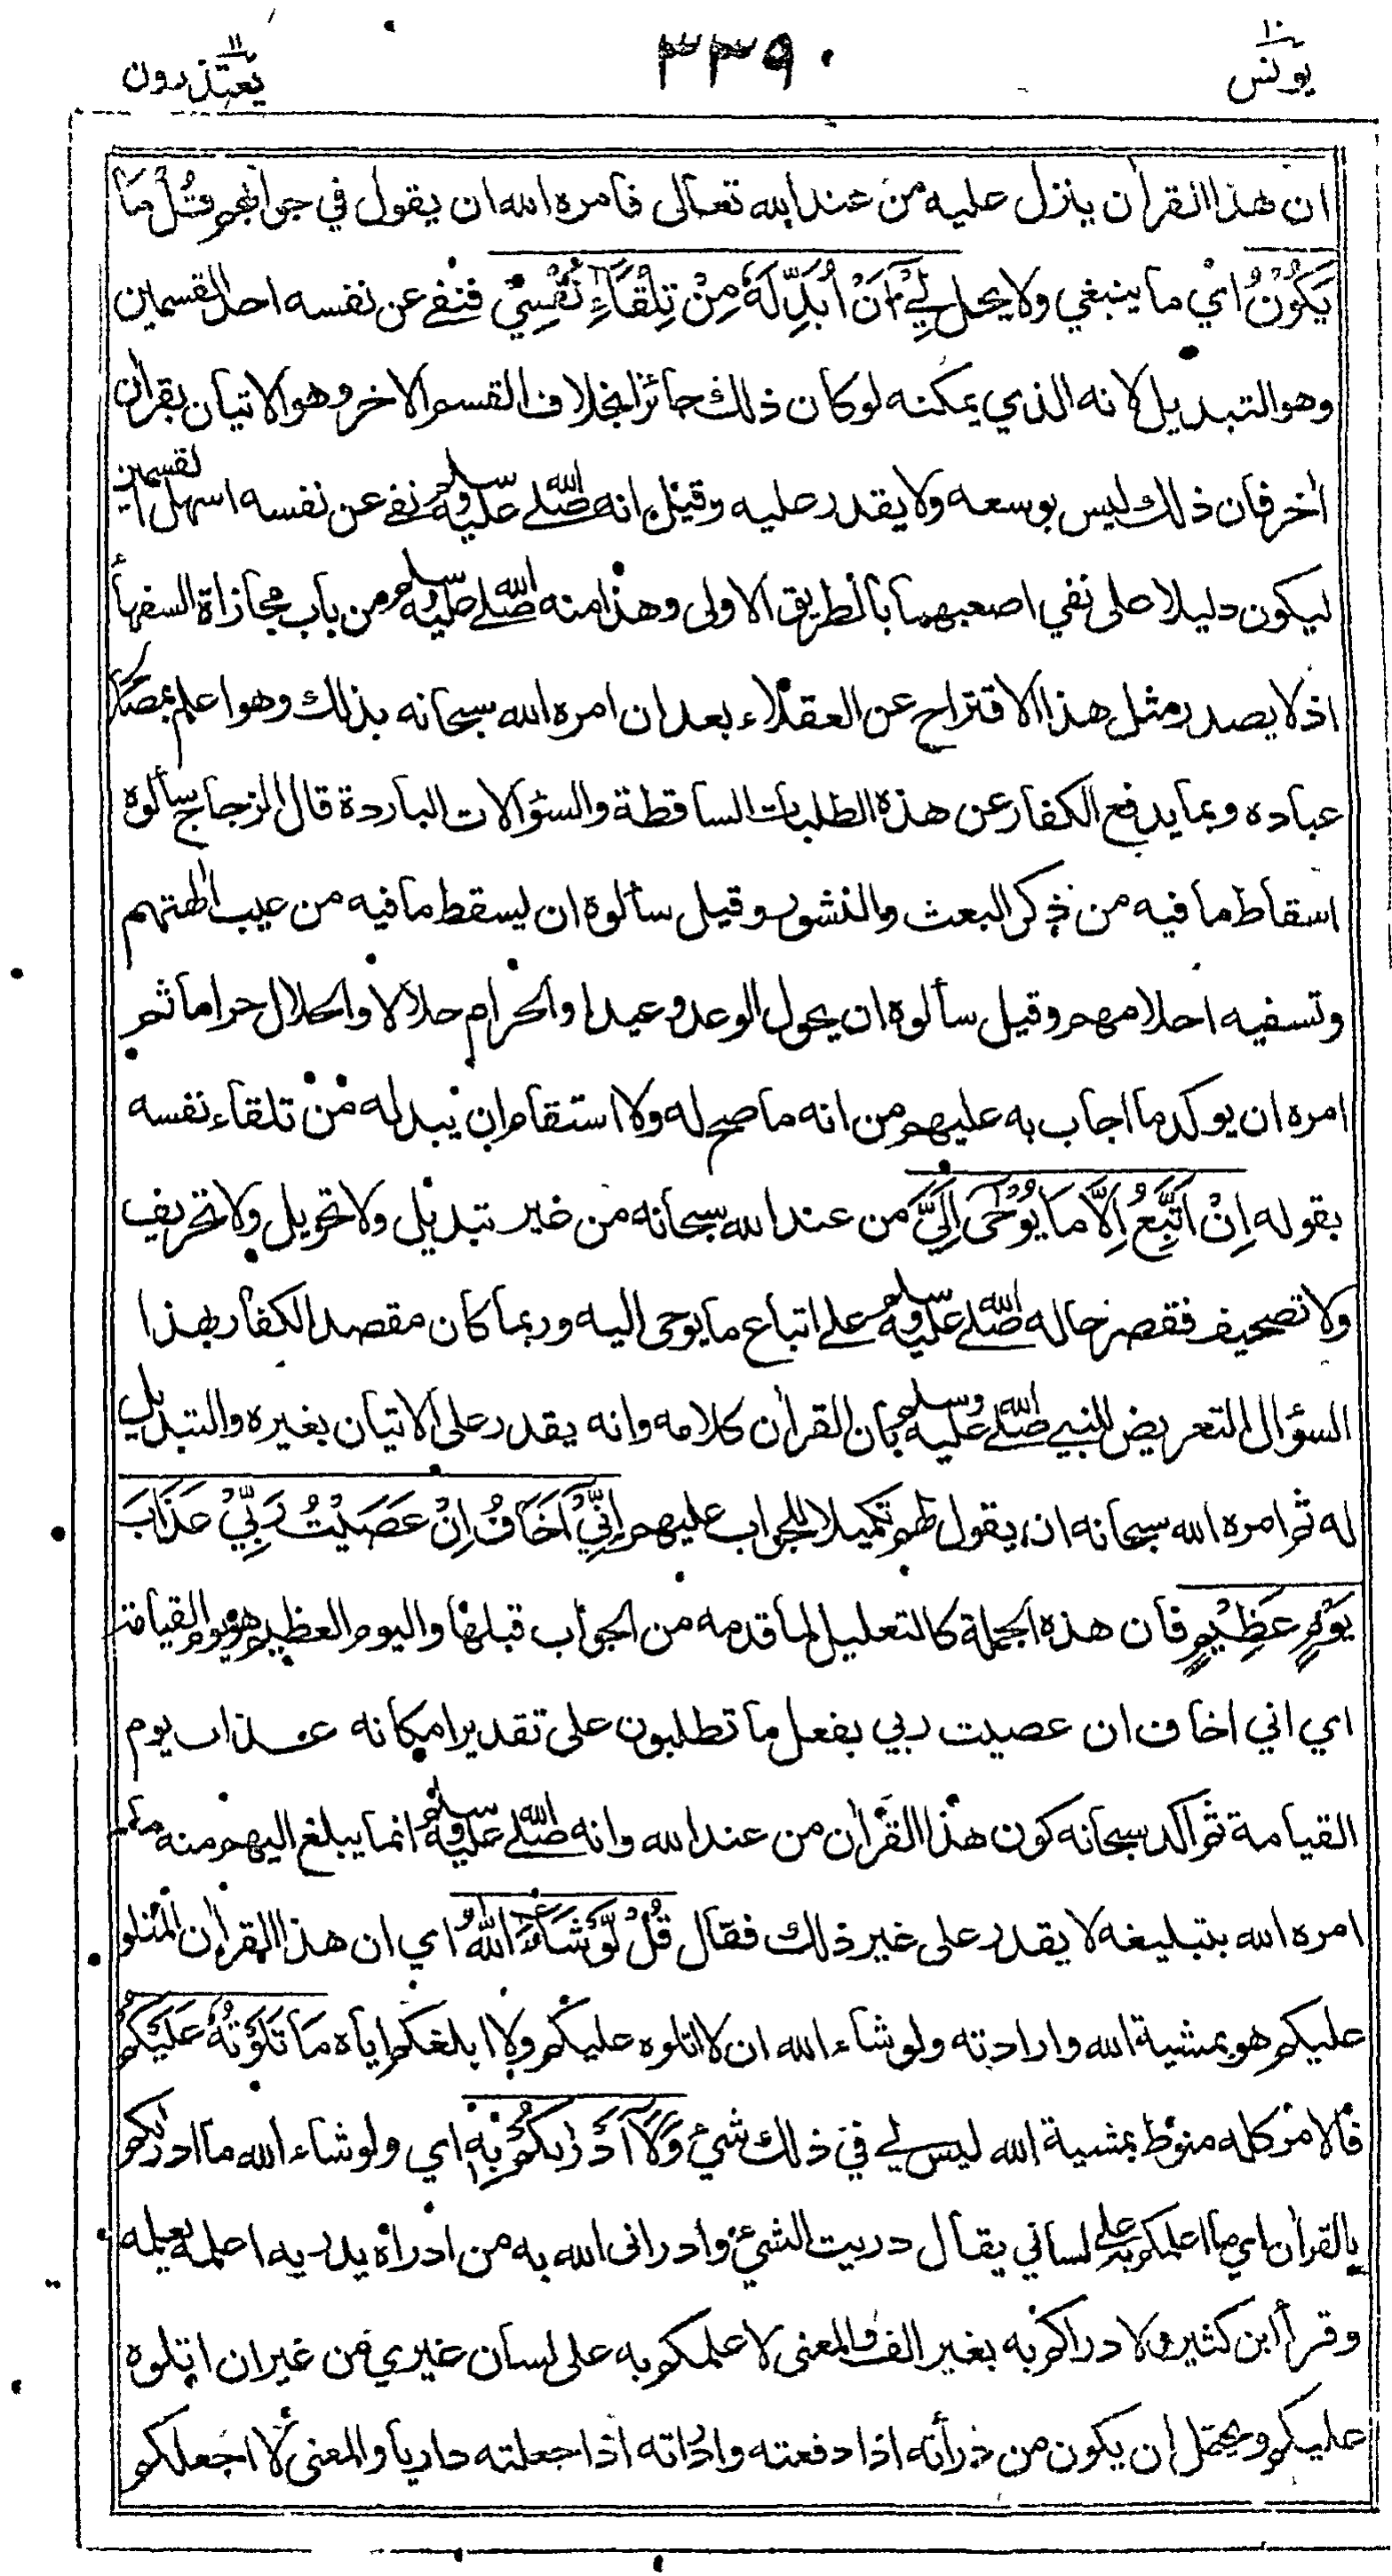 يونس ١٠
٣٣٩
يعتذرون ١١
ان هذا القرأن ينزل عليه من عند الله تعالى فامره الله ان يقول في جوابهم قُلْ مَا
يَكُوْنُ اي ما ينبغي ولا يحل لِيْٓ اَنْ اُبَدِّلَهٗ مِنْ تِلْقَآءِ نَفْسِيْ فنفى عن نفسه احد القسمين
وهو التبديل لانه الذي يمكنه لو كان ذلك جائزا بخلاف القسم الاخر وهو الاتيان بقرأن
اٰخر فان ذلك ليس بوسعه ولا يقدر عليه وقيل انه صلى الله عليه وسلم نفى عن نفسه اسهل القسمين
ليكون دليلا على نفي اصعبهما بالطريق الاولى وهذا منه صلى الله عليه وسلم من باب مجازاة السفهاء
اذ لا يصدر مثل هذا الاقتراح عن العقلاء بعد ان امره الله سبحانه بذلك وهو اعلم بمصالح
عباده وبما يدفع الكفار عن هذه الطلبات الساقطة والسؤالات الباردة قال الزجاج سألوه
اسقاط ما فيه من ذكر البعث والنشور وقيل سألوه ان يسقط ما فيه من عيب الهتهم
وتسفيه احلامهم وقيل سألوه ان يحول الوعد وعيدا والحرام حلالا والحلال حراما ثم
امره ان يوكد ما اجاب به عليهم من انه ما صح له ولا استقام ان يبدله من تلقاء نفسه
بقوله اِنْ اَتَّبِعُ اِلَّا مَا يُوْحٰى اِلَيَّ من عند الله سبحانه من غير تبديل ولا تحويل ولا تحريف
ولا تصحيف فقصر حاله صلى الله عليه وسلم على اتباع ما يوحى اليه وربما كان مقصد الكفار بهذا
السؤال التعريض للنبي صلى الله عليه وسلم بان القرأن كلامه وانه يقدر على الاتيان بغيره والتبديل
له ثم امره الله سبحانه ان يقول لهم تكميلا للجواب عليهم اِنِّيْٓ اَخَافُ اِنْ عَصَيْتُ رَبِّيْ عَذَابَ
يَوْمٍ عَظِيْمٍ فان هذه الجملة كالتعليل لما قدمه من الجواب قبلها واليوم العظيم هو يوم القيامة
اي اني اخاف ان عصيت ربي بفعل ما تطلبون على تقدير امكانه عذاب يوم
القيامة ثم اكد سبحانه كون هذا القرأن من عند الله وانه صلى الله عليه وسلم انما يبلغ اليهم منه ما
امره الله بتبليغه لا يقدر على غير ذلك فقال قُلْ لَّوْ شَآءَ اللّٰهُ اي ان هذا القرأن المتلو
عليكم هو بمشية الله وارادته ولو شاء الله ان لا اتلوه عليكم ولا ابلغكم اياه مَا تَلَوْتُهٗ عَلَيْكُمْ
فالامر كله منوط بمشية الله ليس لي في ذلك شيئ وَلَآ اَدْرٰىكُمْ بِهٖ اي ولو شاء الله ما ادركم
بالقرأن اي ما اعلمكم به على لساني يقال دريت الشيئ وادراني الله به من ادراه يدريه اعلمه يعلمه
وقرأ ابن كثير ولا دراكم به بغير الف والمعنى لا علمكم به على لسان غيري من غير ان اتلوه
عليكم ويحتمل ان يكون من درأته اذا دفعته وادرأته اذا جعلته داريا والمعنى لا اجعلكم